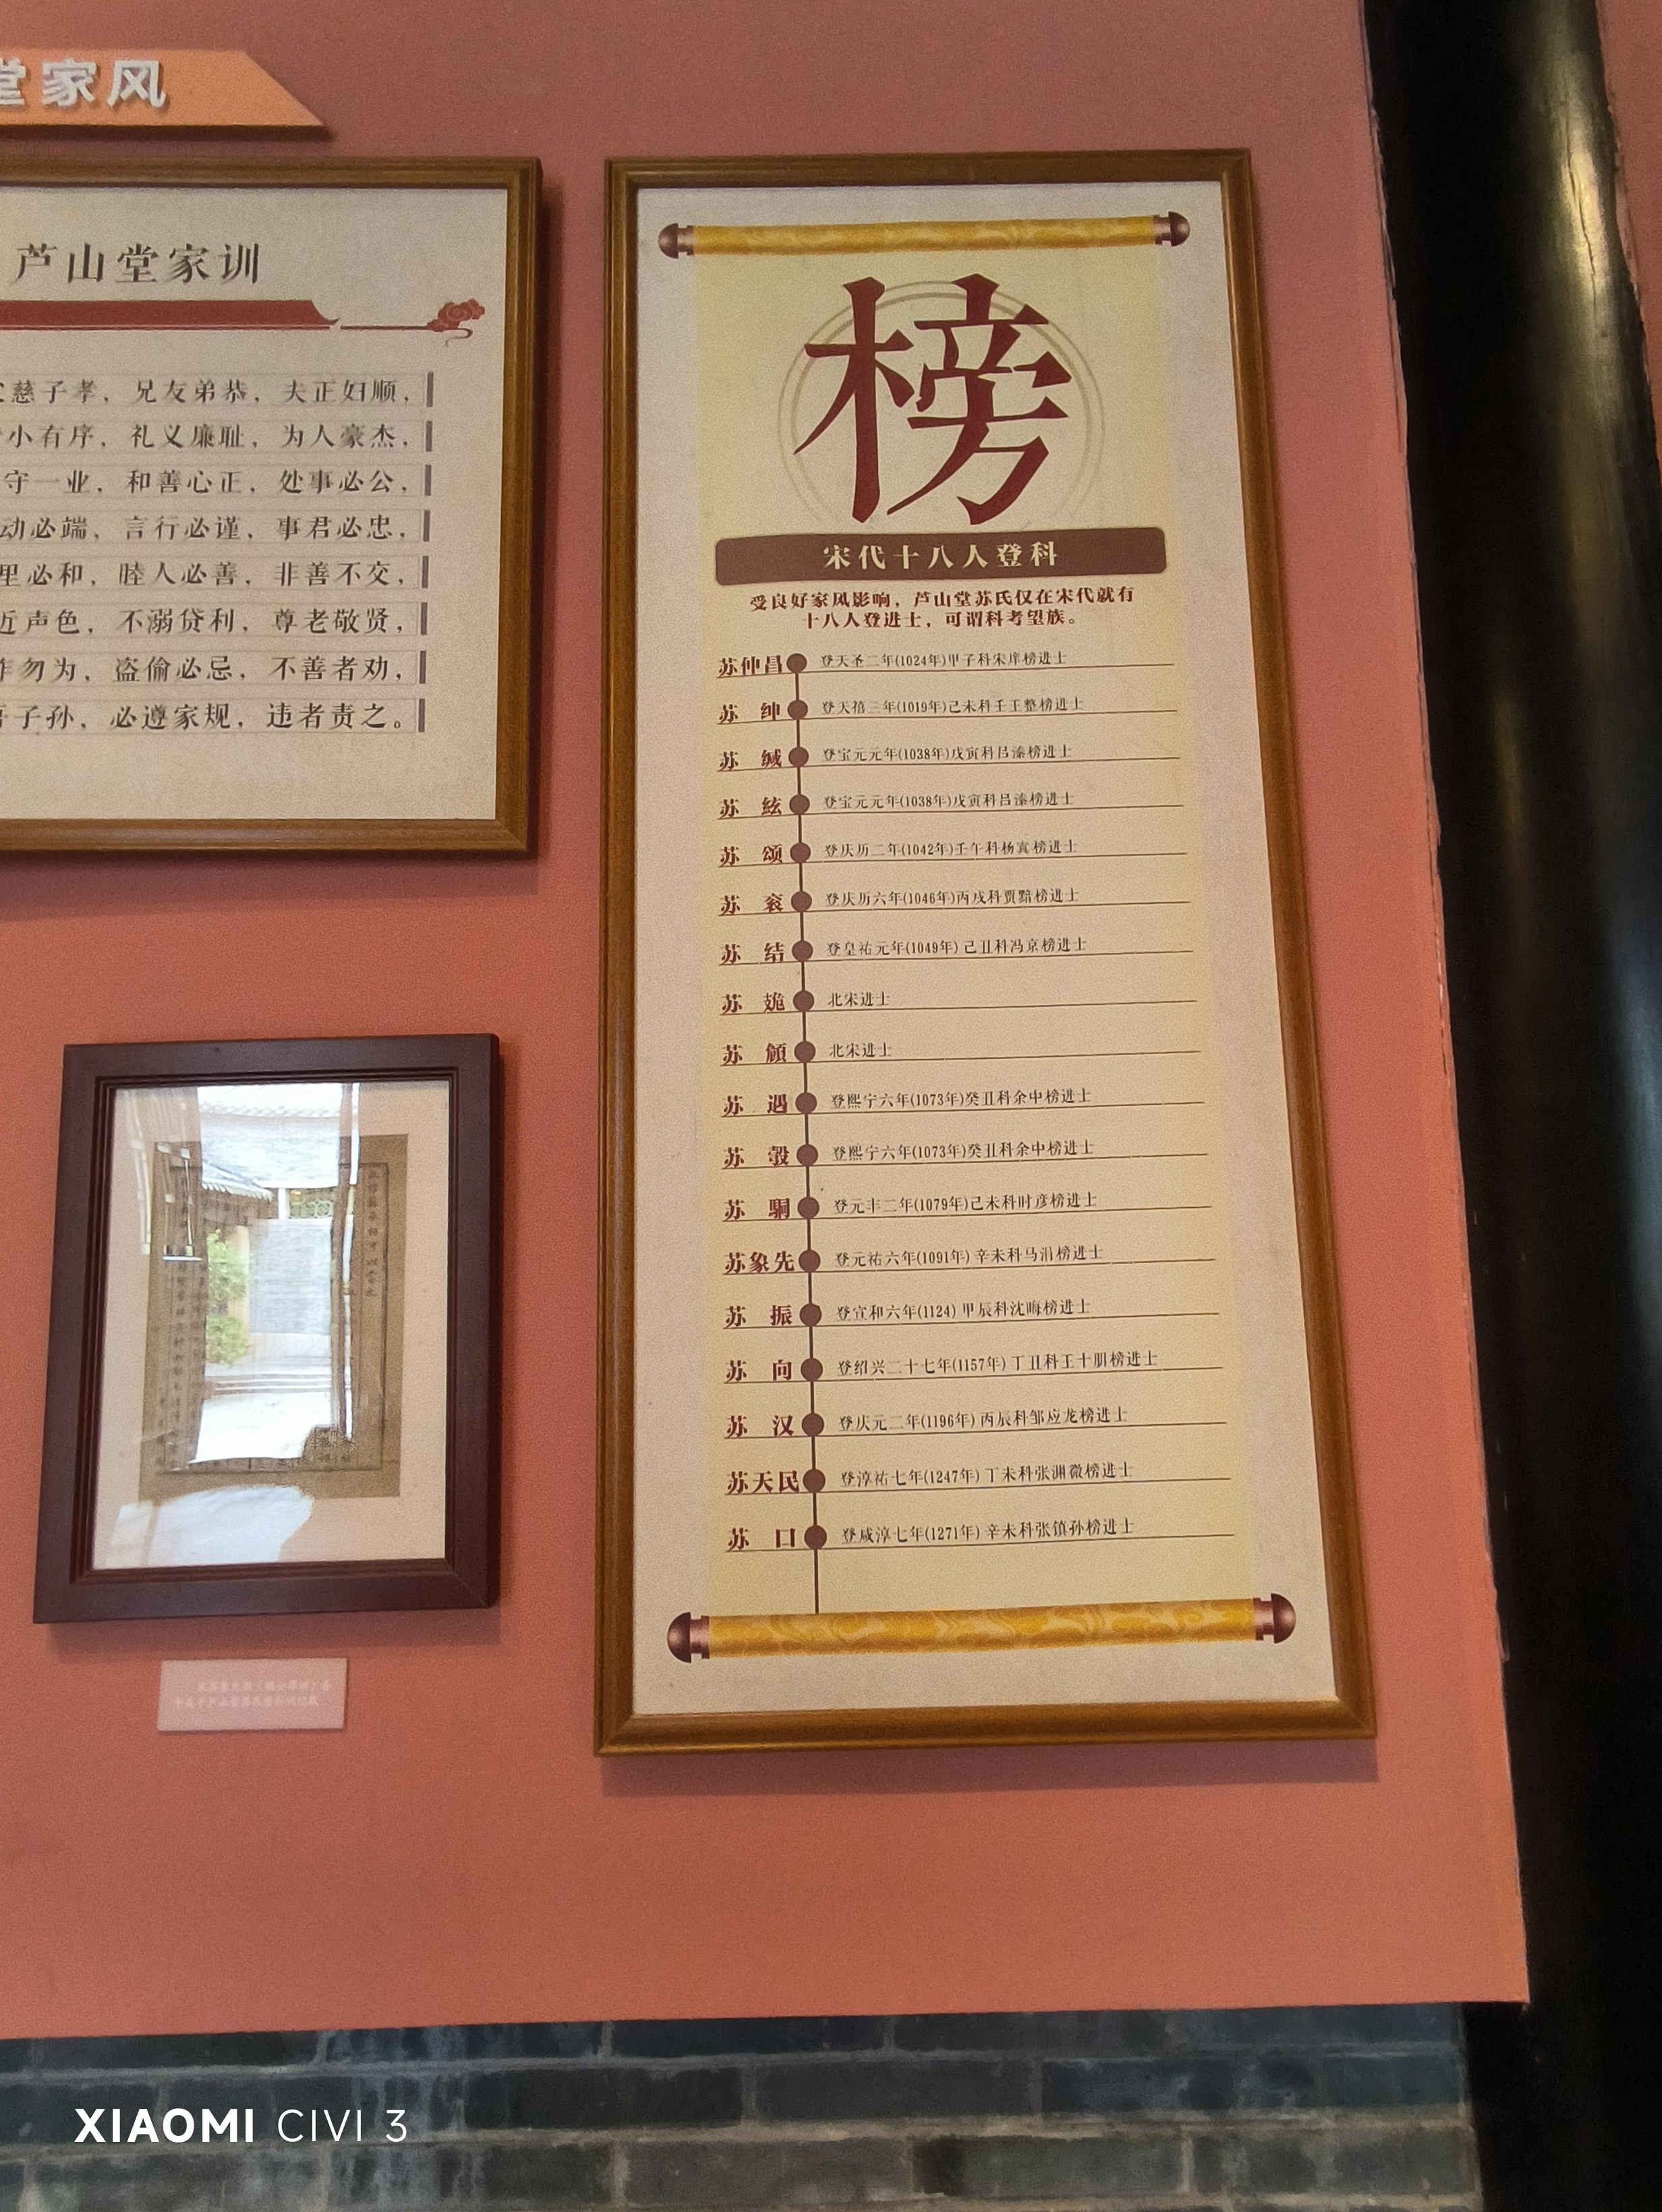 堂家风
芦山堂家训
慈子孝，兄友弟恭，夫正妇顺，
小有序，礼义廉耻，为人豪杰，
守一业，和善心正，处事必公，
动必端，言行必谨，事君必忠，
里必和，睦人必善，非善不交，
近声色，不溺贷利，尊老敬贤，
勿为，盗偷必忌，不善者劝，
子孙，必遵家规，违者责之。
榜
宋代十八人登科
受良好家风影响，芦山堂苏氏仅在宋代就有
十八人登进士，可谓科考望族。
苏仲昌 登天圣二年(1024年)甲子科宋庠榜进士
苏绅 登天禧三年(1019年)己未科壬王整榜进士
苏缄 登宝元元年(1038年)戊寅科吕溱榜进士
苏絃 登宝元元年(1038年)戊寅科吕溱榜进士
苏颂 登庆历二年(1042年)壬午科杨寘榜进士
苏衮 登庆历六年(1046年)丙戌科贾黯榜进士
苏结 登皇祐元年(1049年)己丑科冯京榜进士
苏 北宋进士
苏 北宋进士
苏遇 登熙宁六年(1073年)癸丑科余中榜进士
苏彀 登熙宁六年(1073年)癸丑科余中榜进士
苏駧 登元丰二年(1079年)己未科时彦榜进士
苏象先 登元祐六年(1091年)辛未科马涓榜进士
苏振 登宣和六年(1124)甲辰科沈晦榜进士
苏向 登绍兴二十七年(1157年)丁丑科王十朋榜进士
苏汉 登庆元二年(1196年)丙辰科邹应龙榜进士
苏天民 登淳祐七年(1247年)丁未科张渊微榜进士
苏口 登咸淳七年(1271年)辛未科张镇孙榜进士
XIAOMI CIVI 3